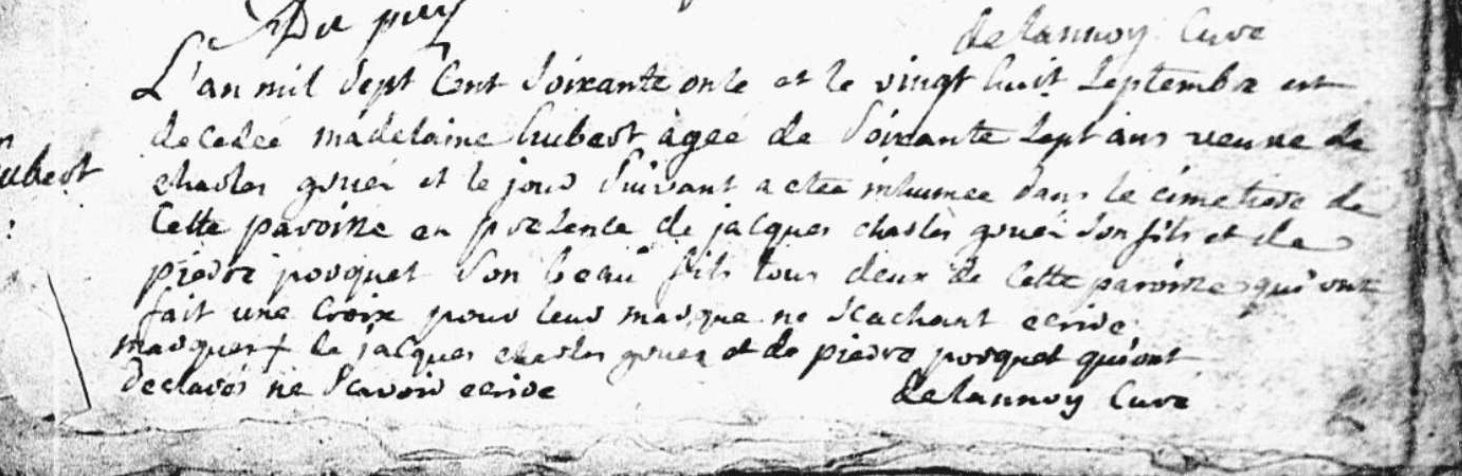 Du puy
delannoy Curé
L'an mil Sept Cent Soixante onze et le vingt huit Septembre est
decedée madelaine hubert agée de Soixante Sept ans veuve de
ubert
charles gouér et le jour Suivant a étée inhumée dans le cimetiere de
Cette paroisse en presence de jacques charles gouér Son fils et de
pierre porquet Son beau fils tous deux de Cette paroisse qui ont
fait une Croix pour leur marque ne Scachant ecrire
marques + de jacques charles gouer et de pierre porquet qui ont
declarés ne Scavoir ecrire
delannoy Curé